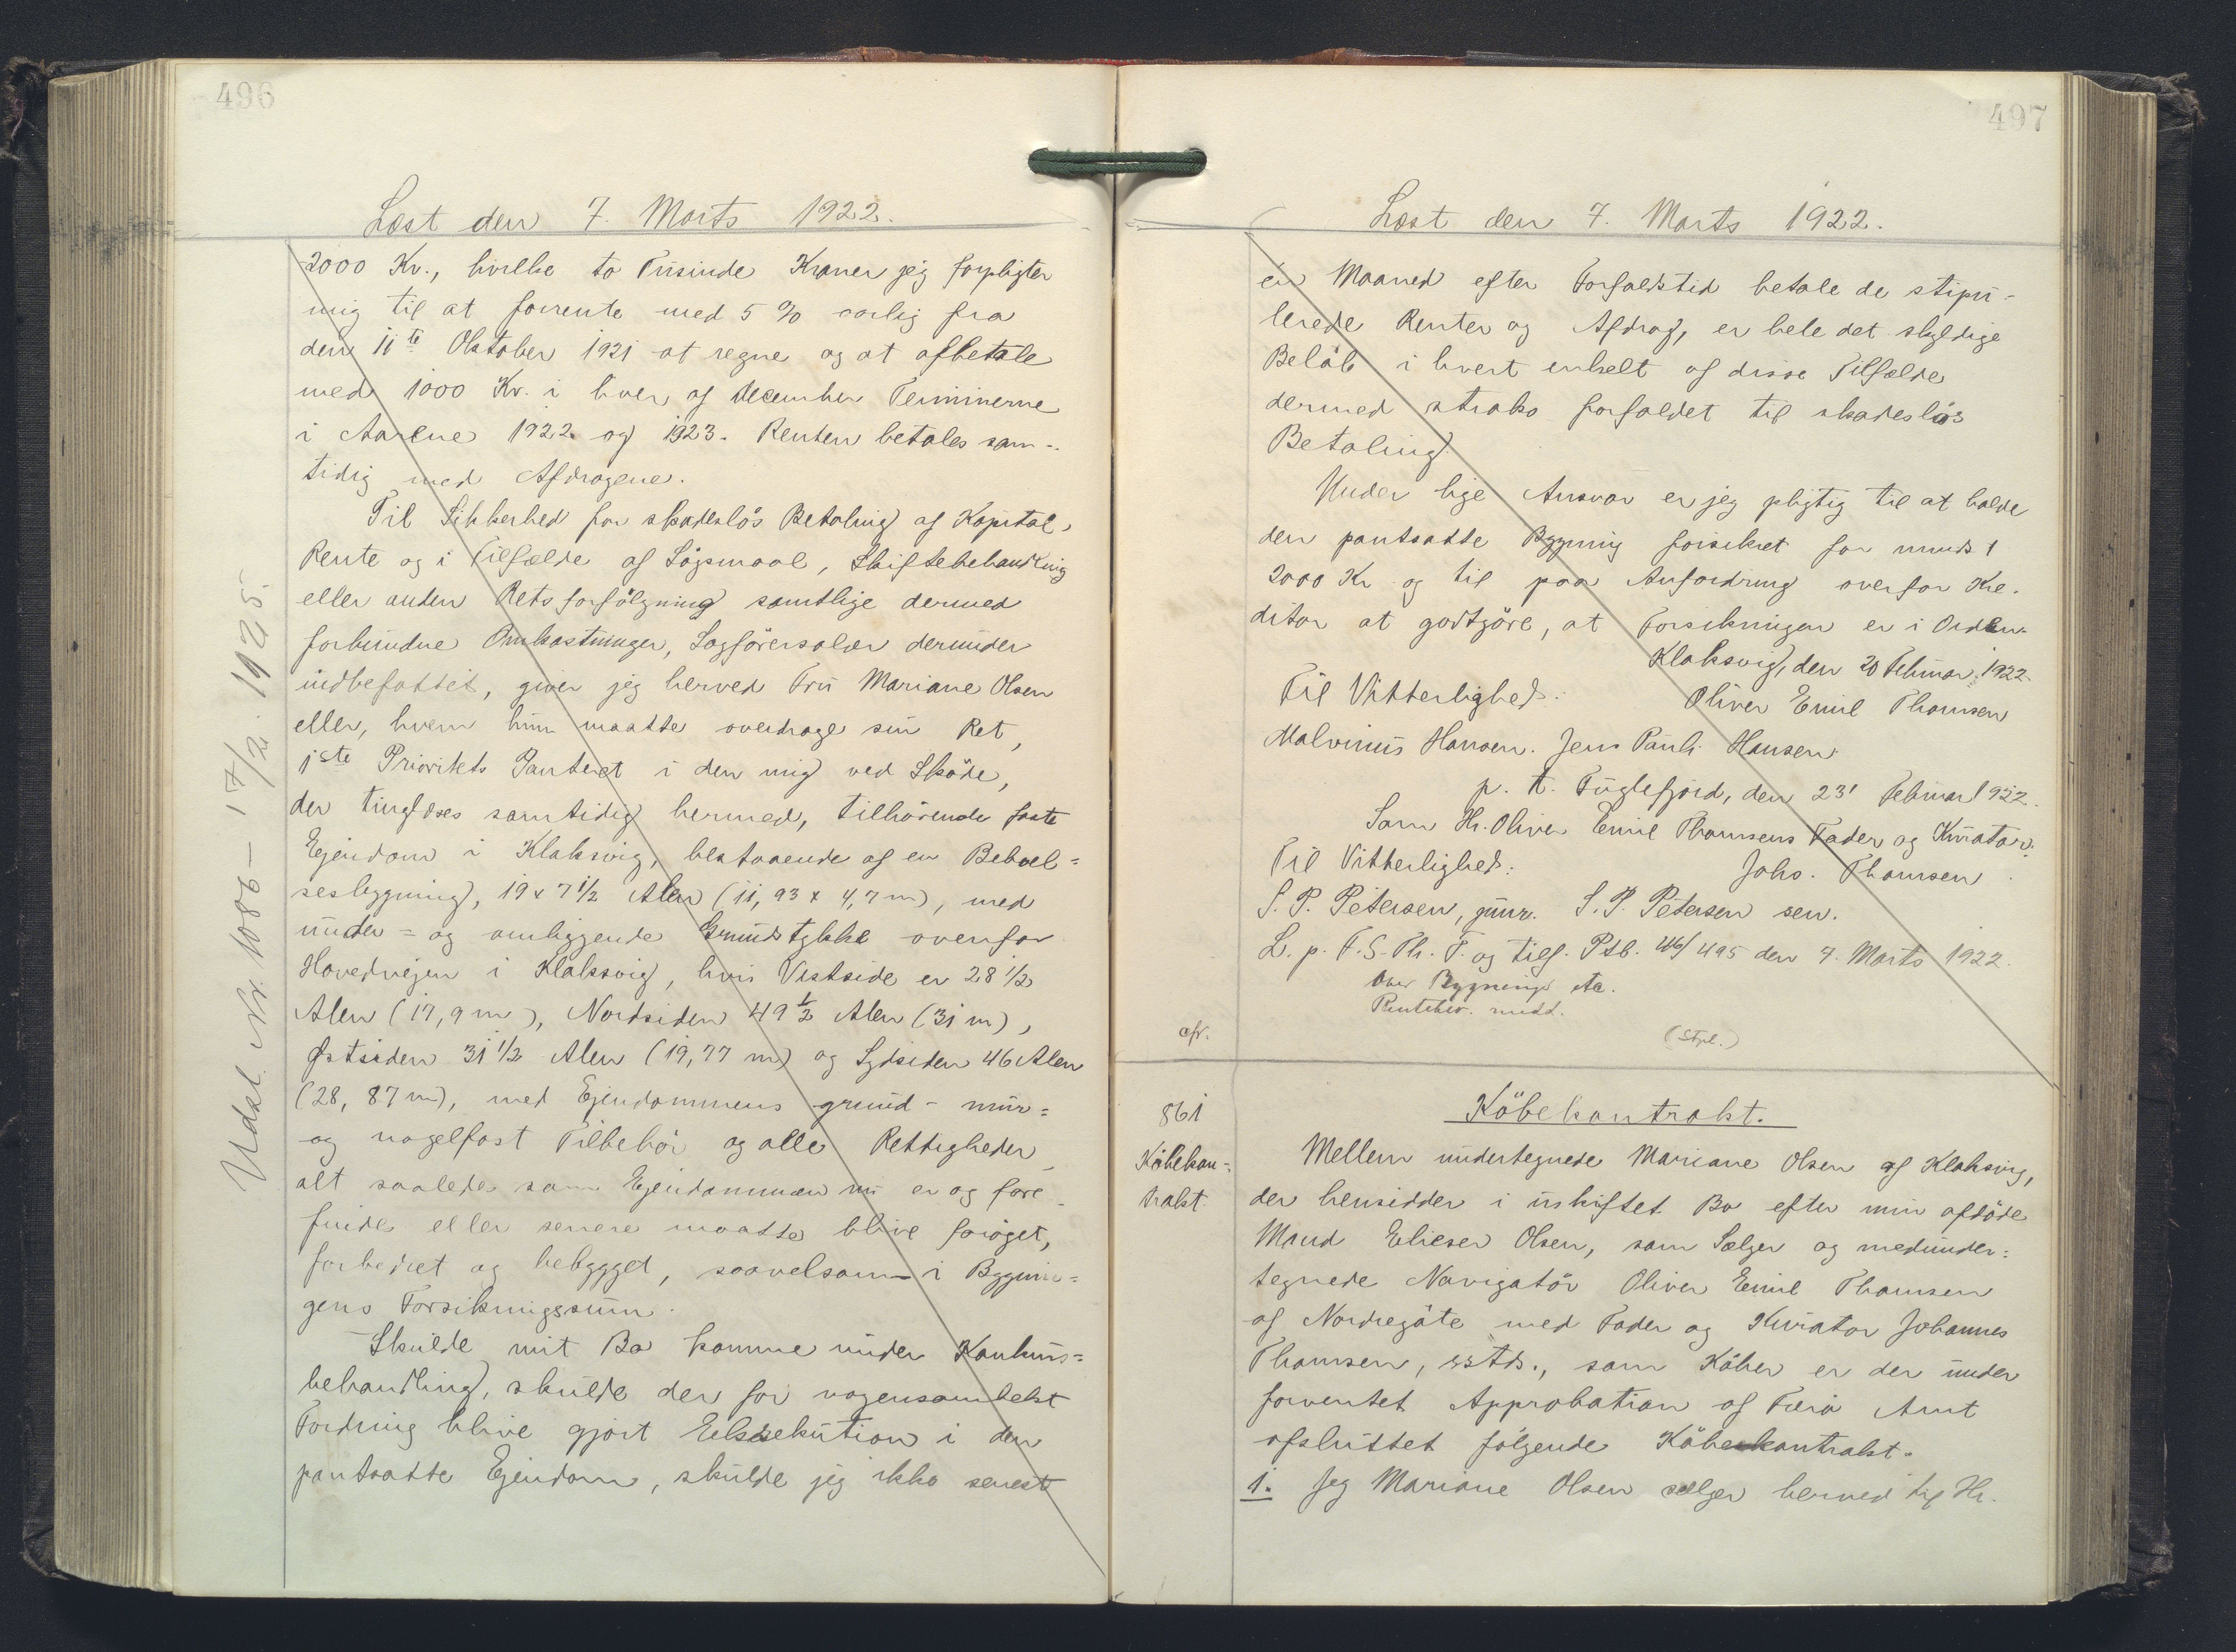 496
Læst den 7. Marts 1922.
2000 Kr., hvilke to Tusinde Kroner jeg forpligter
mig til at forrente med 5 % aarlig fra
den 11te Oktober 1921 at regne og at afbetale
med 1000 Kr. i hver af December Terminerne
i Aarene 1922 og 1923. Renten betales sam-
tidig med Afdragene.
Til Sikkerhed for skadeslös Betaling af Kapital,
Rente og i Tilfælde af Sögsmaal, Skiftebehandling
eller anden Retsforfölgning samtlige dermed
forbundne Omkostninger, Sagförersalær derunder
indbefattet, giver jeg herved Fru Mariane Olsen
eller, hvem hun maatte overdrage sin Ret,
1ste Prioritets Panteret i den mig ved Sköde,
der tinglæses samtidig hermed, tilhörende faste
Ejendom i Klaksvig, bestaaende af en Beboel=
sesbygning, 19 x 7 1/2 Alen (11,93 x 4,7 m), med
under= og omliggende Grundstykke ovenfor
Hovedvejen i Klaksvig, hvis Vestside er 28 1/2
Alen (17,9 m), Nordsiden 49 1/2 Alen (31 m),
Østsiden 31 1/2 Alen (19,77 m) og Sydsiden 46 Alen
(28,87 m), med Ejendommens grund- mur=
og nagelfast Tilbehör og alle Rettigheder,
alt saaledes som Ejendommen nu er og fore-
findes eller senere maatte blive foröget,
forbedret og bebygget, saavelsom i Bygnin=
gens Forsikringssum.
Skulde mit Bo komme under Konkurs=
behandling, skulde der for nogensomhelst
Fordring blive gjort Eksekution i den
pantsatte Ejendom, skulde jeg ikke senest
Udsl. Nr. 1086 - 17/2. 1925.
497
Læst den 7. Marts 1922.
én Maaned efter Forfaldstid betale de stipu-
lerede Renter og Afdrag, er hele det skyldige
Belöb i hvert enkelt af disse Tilfælde
dermed straks forfaldet til skadeslös
Betaling.
Under lige Ansvar er jeg pligtig til at holde
den pantsatte Bygning forsikret for mindst
2000 Kr og til paa Anfordring overfor Kre-
ditor at godtgöre, at Forsikringen er i Orden.
Klaksvig, den 20 Februar 1922.
Til Vitterlighed: Oliver Emil Thomsen
Malvinus Hansen. Jens Pauli Hansen.
p. t. Fuglefjord, den 23' Februar 1922.
Som Hr. Oliver Emil Thomsens Fader og Kurator:
Til Vitterlighed: Johs. Thomsen
S. P. Petersen, junr. S. P. Petersen sen.
L. p. F. S. Th. T. og tilf. Ptb. 46/495 den 7. Marts 1922.
over Bygninger etc.
Panteher. medd.
(Stpl.)
cfr.
861
Köbekon=
trakt.
Köbekontrakt.
Mellem undertegnede Mariane Olsen af Klaksvig,
der hensidder i uskiftet Bo efter min afdöde
Mand Elieser Olsen, som Sælger og medunder=
tegnede Navigatör Oliver Emil Thomsen
af Nordregöte med Fader og Kurator Johannes
Thomsen, sstds., som Köber er der under
forventet Approbation af Færö Amt
afsluttet fölgende Köbekontrakt.
1. Jeg Mariane Olsen sælger herved til Hr.